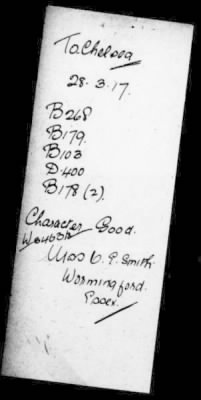 To Chelsea
28.3.17.
B268
B179.
B103
D400
B178 (2).
Character Good.
Smith
Wormingford.
Essex.